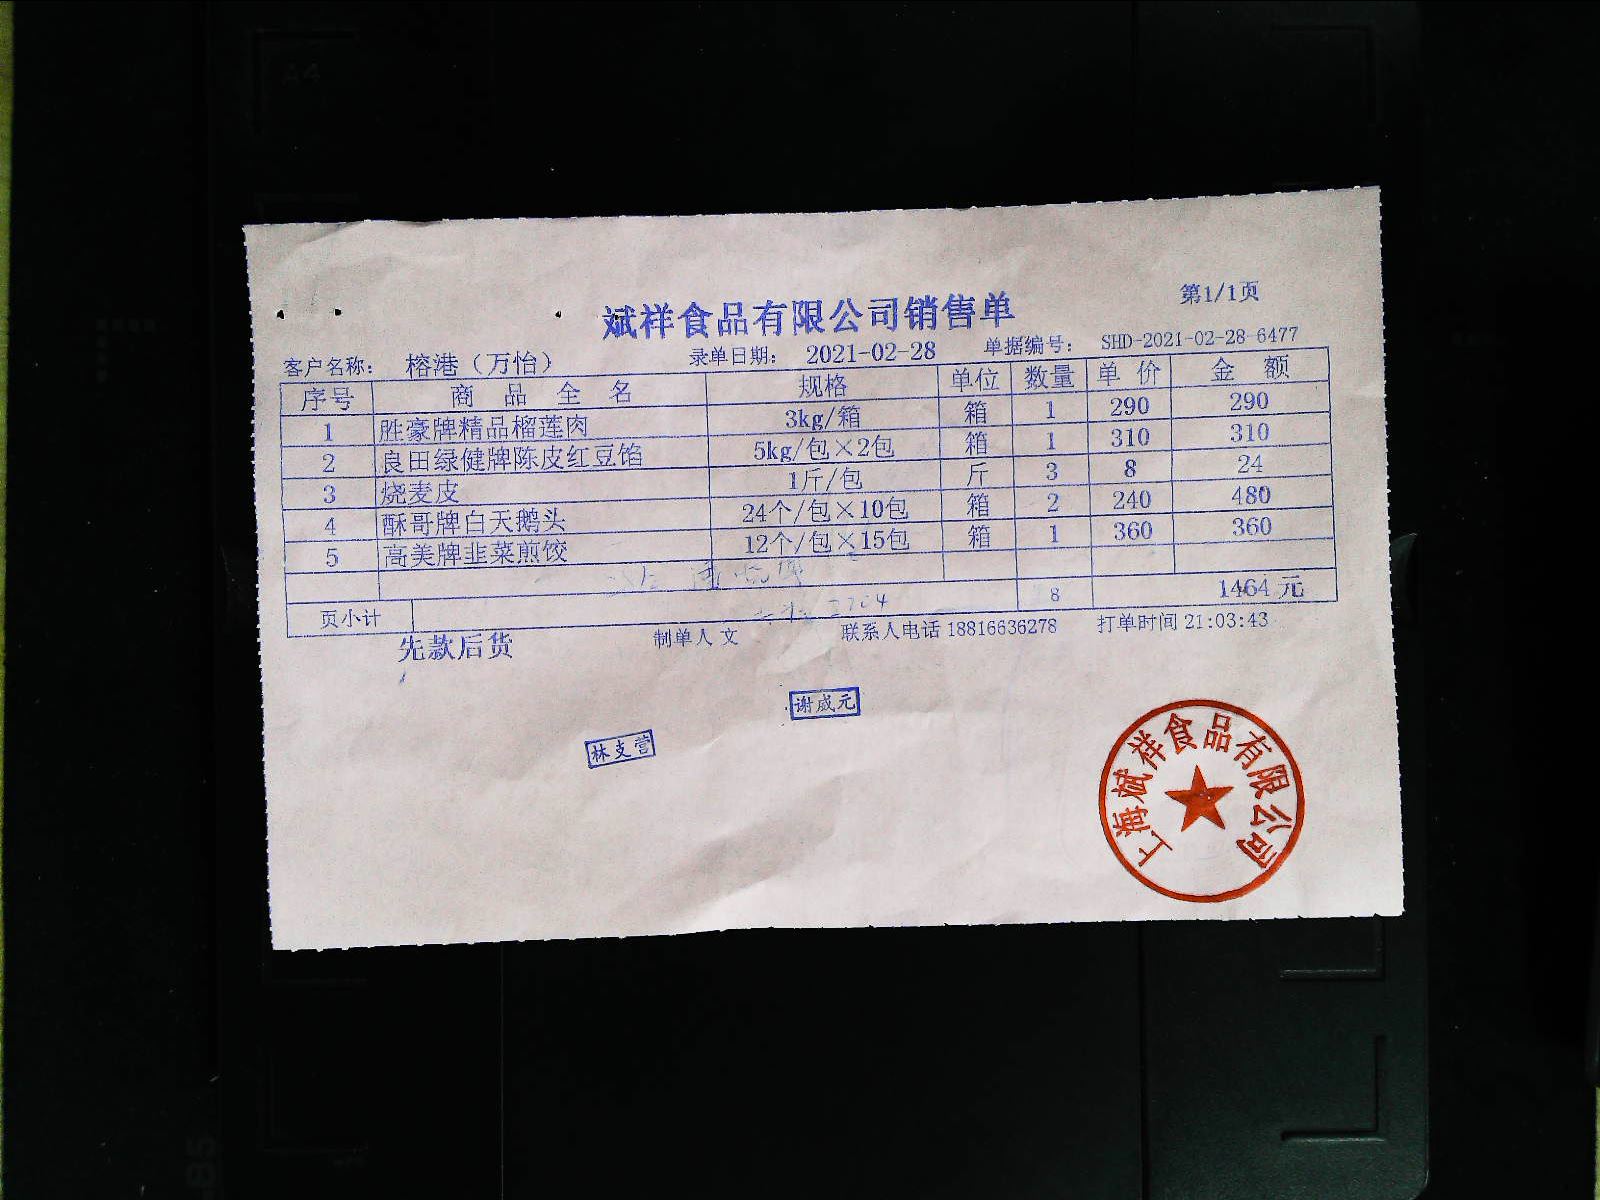 A4
第1/1页
斌祥食品有限公司销售单
客户名称： 榕港（万怡） 录单日期： 2021-02-28 单据编号： SHD-2021-02-28-6477
序号 商 品 全 名 规格 单位 数量 单 价 金 额
1 胜豪牌精品榴莲肉 3kg/箱 箱 1 290 290
2 良田绿健牌陈皮红豆馅 5kg/包×2包 箱 1 310 310
3 烧麦皮 1斤/包 斤 3 8 24
4 酥哥牌白天鹅头 24个/包×10包 箱 2 240 480
5 高美牌韭菜煎饺 12个/包×15包 箱 1 360 360
页小计 8 1464 元
先款后货 制单人 文 联系人电话 18816636278 打单时间 21:03:43
谢威元
林支营
上海斌祥食品有限公司
B5